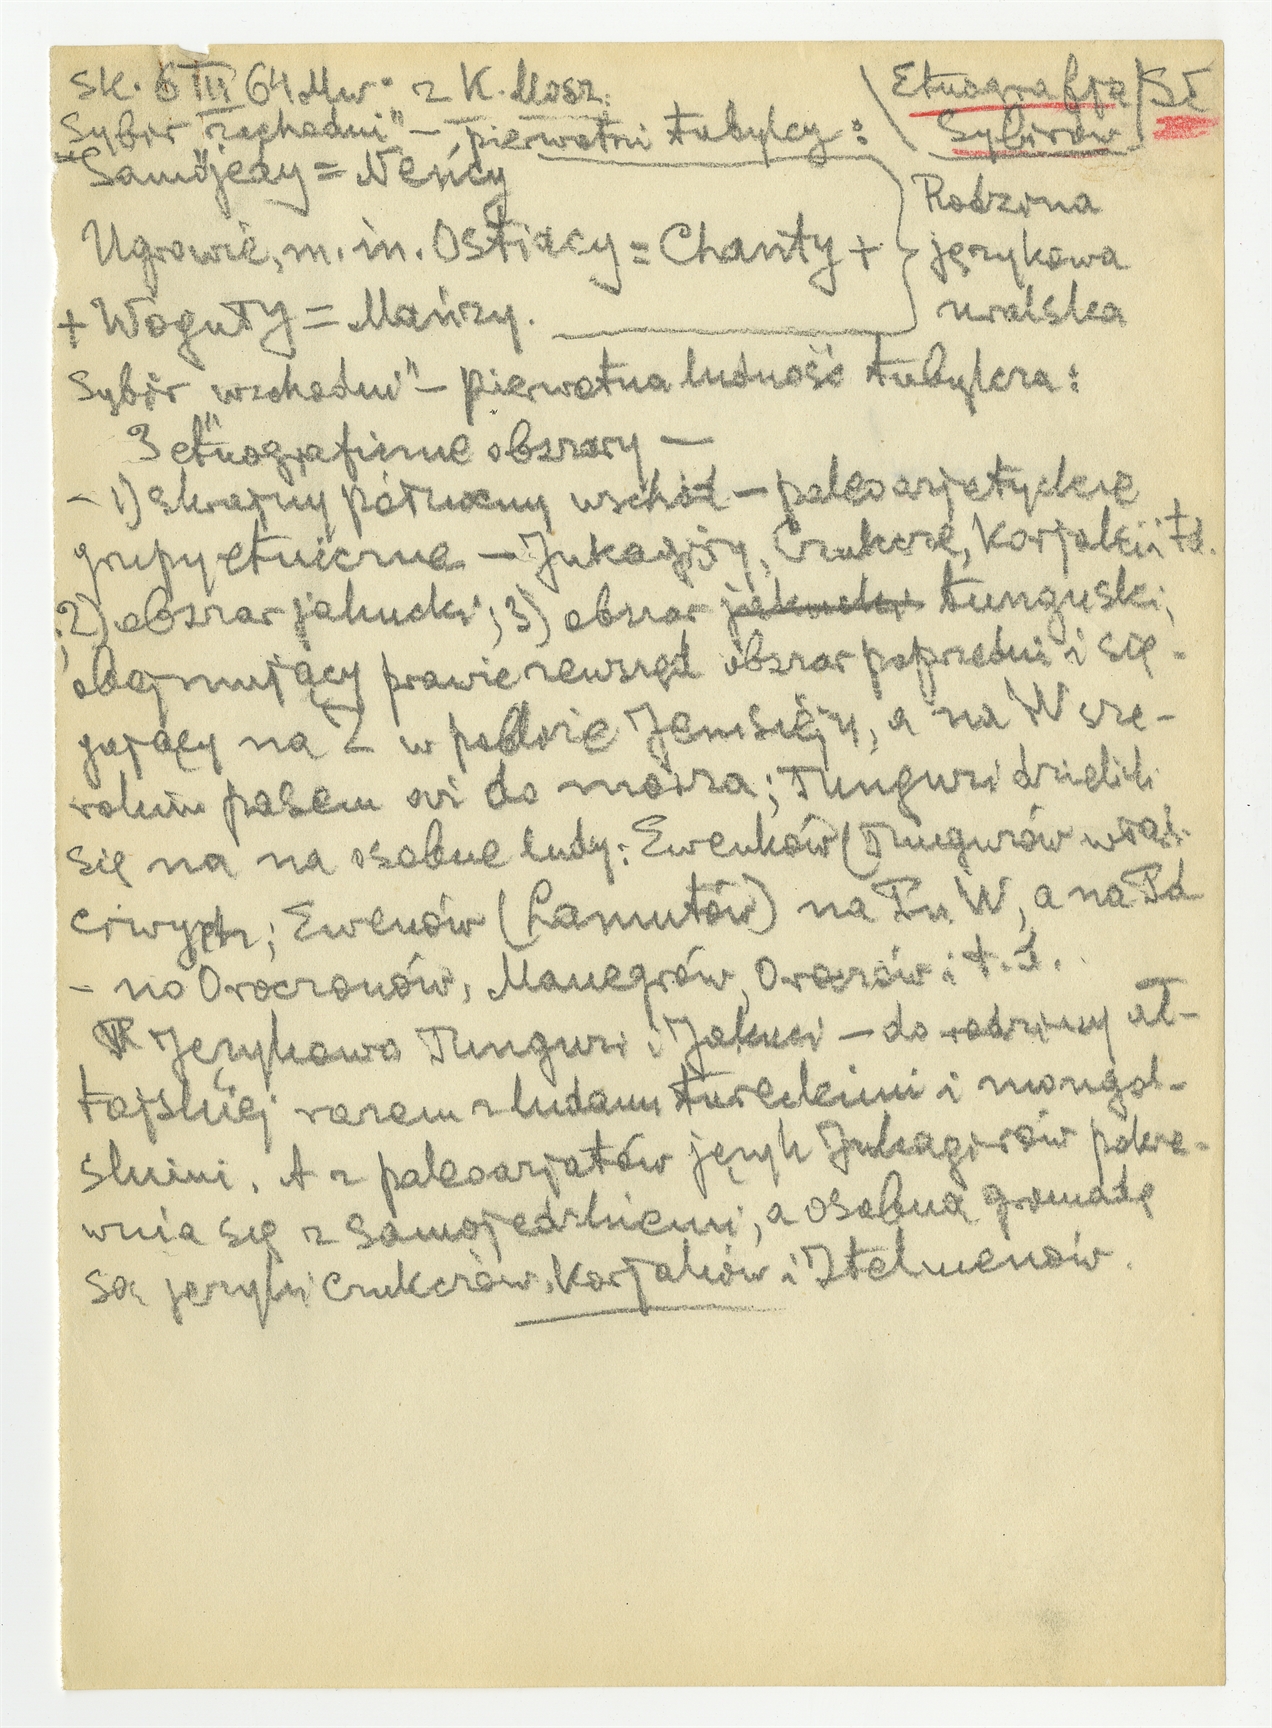 Sk. 6 III 64 Mw. z K. Mosz.
Etnografja
Sybirów
SŁ
Sybir „zachodni” – pierwotni tubylcy:
Samojedy = Neńcy
Ugrowie, m. in. Ostiacy = Chanty +
+ Woguły = Mańzy.
Rodzina
językowa
uralska
Sybir wschodni” – pierwotna ludność tubylcza:
3 etnograficzne obszary –
– 1) skrajny północny wschód – paleoazjatyckie
grupy etniczne – Jukagiry, Czukcze, Korjaki i td.
2) obszar jakucki; 3) obszar jakucki tunguski,
obejmujący prawie zewsząd obszar poprzedni i się-
gający na Z w pobliże Jeniseju, a na W sze-
rokim pasem aż do morza; Tunguzi dzielili
się na na osobne ludy: Ewenków (Tunguzów właś-
ciwych; Ewenów (Lamutów) na Pn. W, a na Pd
– na Oroczonów, Manegrów, Oroczów i t. d.
Językowo Tunguzi i Jakuci – do rodziny ał-
tajskiej razem z ludami tureckimi i mongol-
skimi. A z paleoazjatów język Jukagirów pokre-
wnia się z samojedzkiemi, a osobną gromadę
są języki Czukczów, Korjaków i Itelmenów.